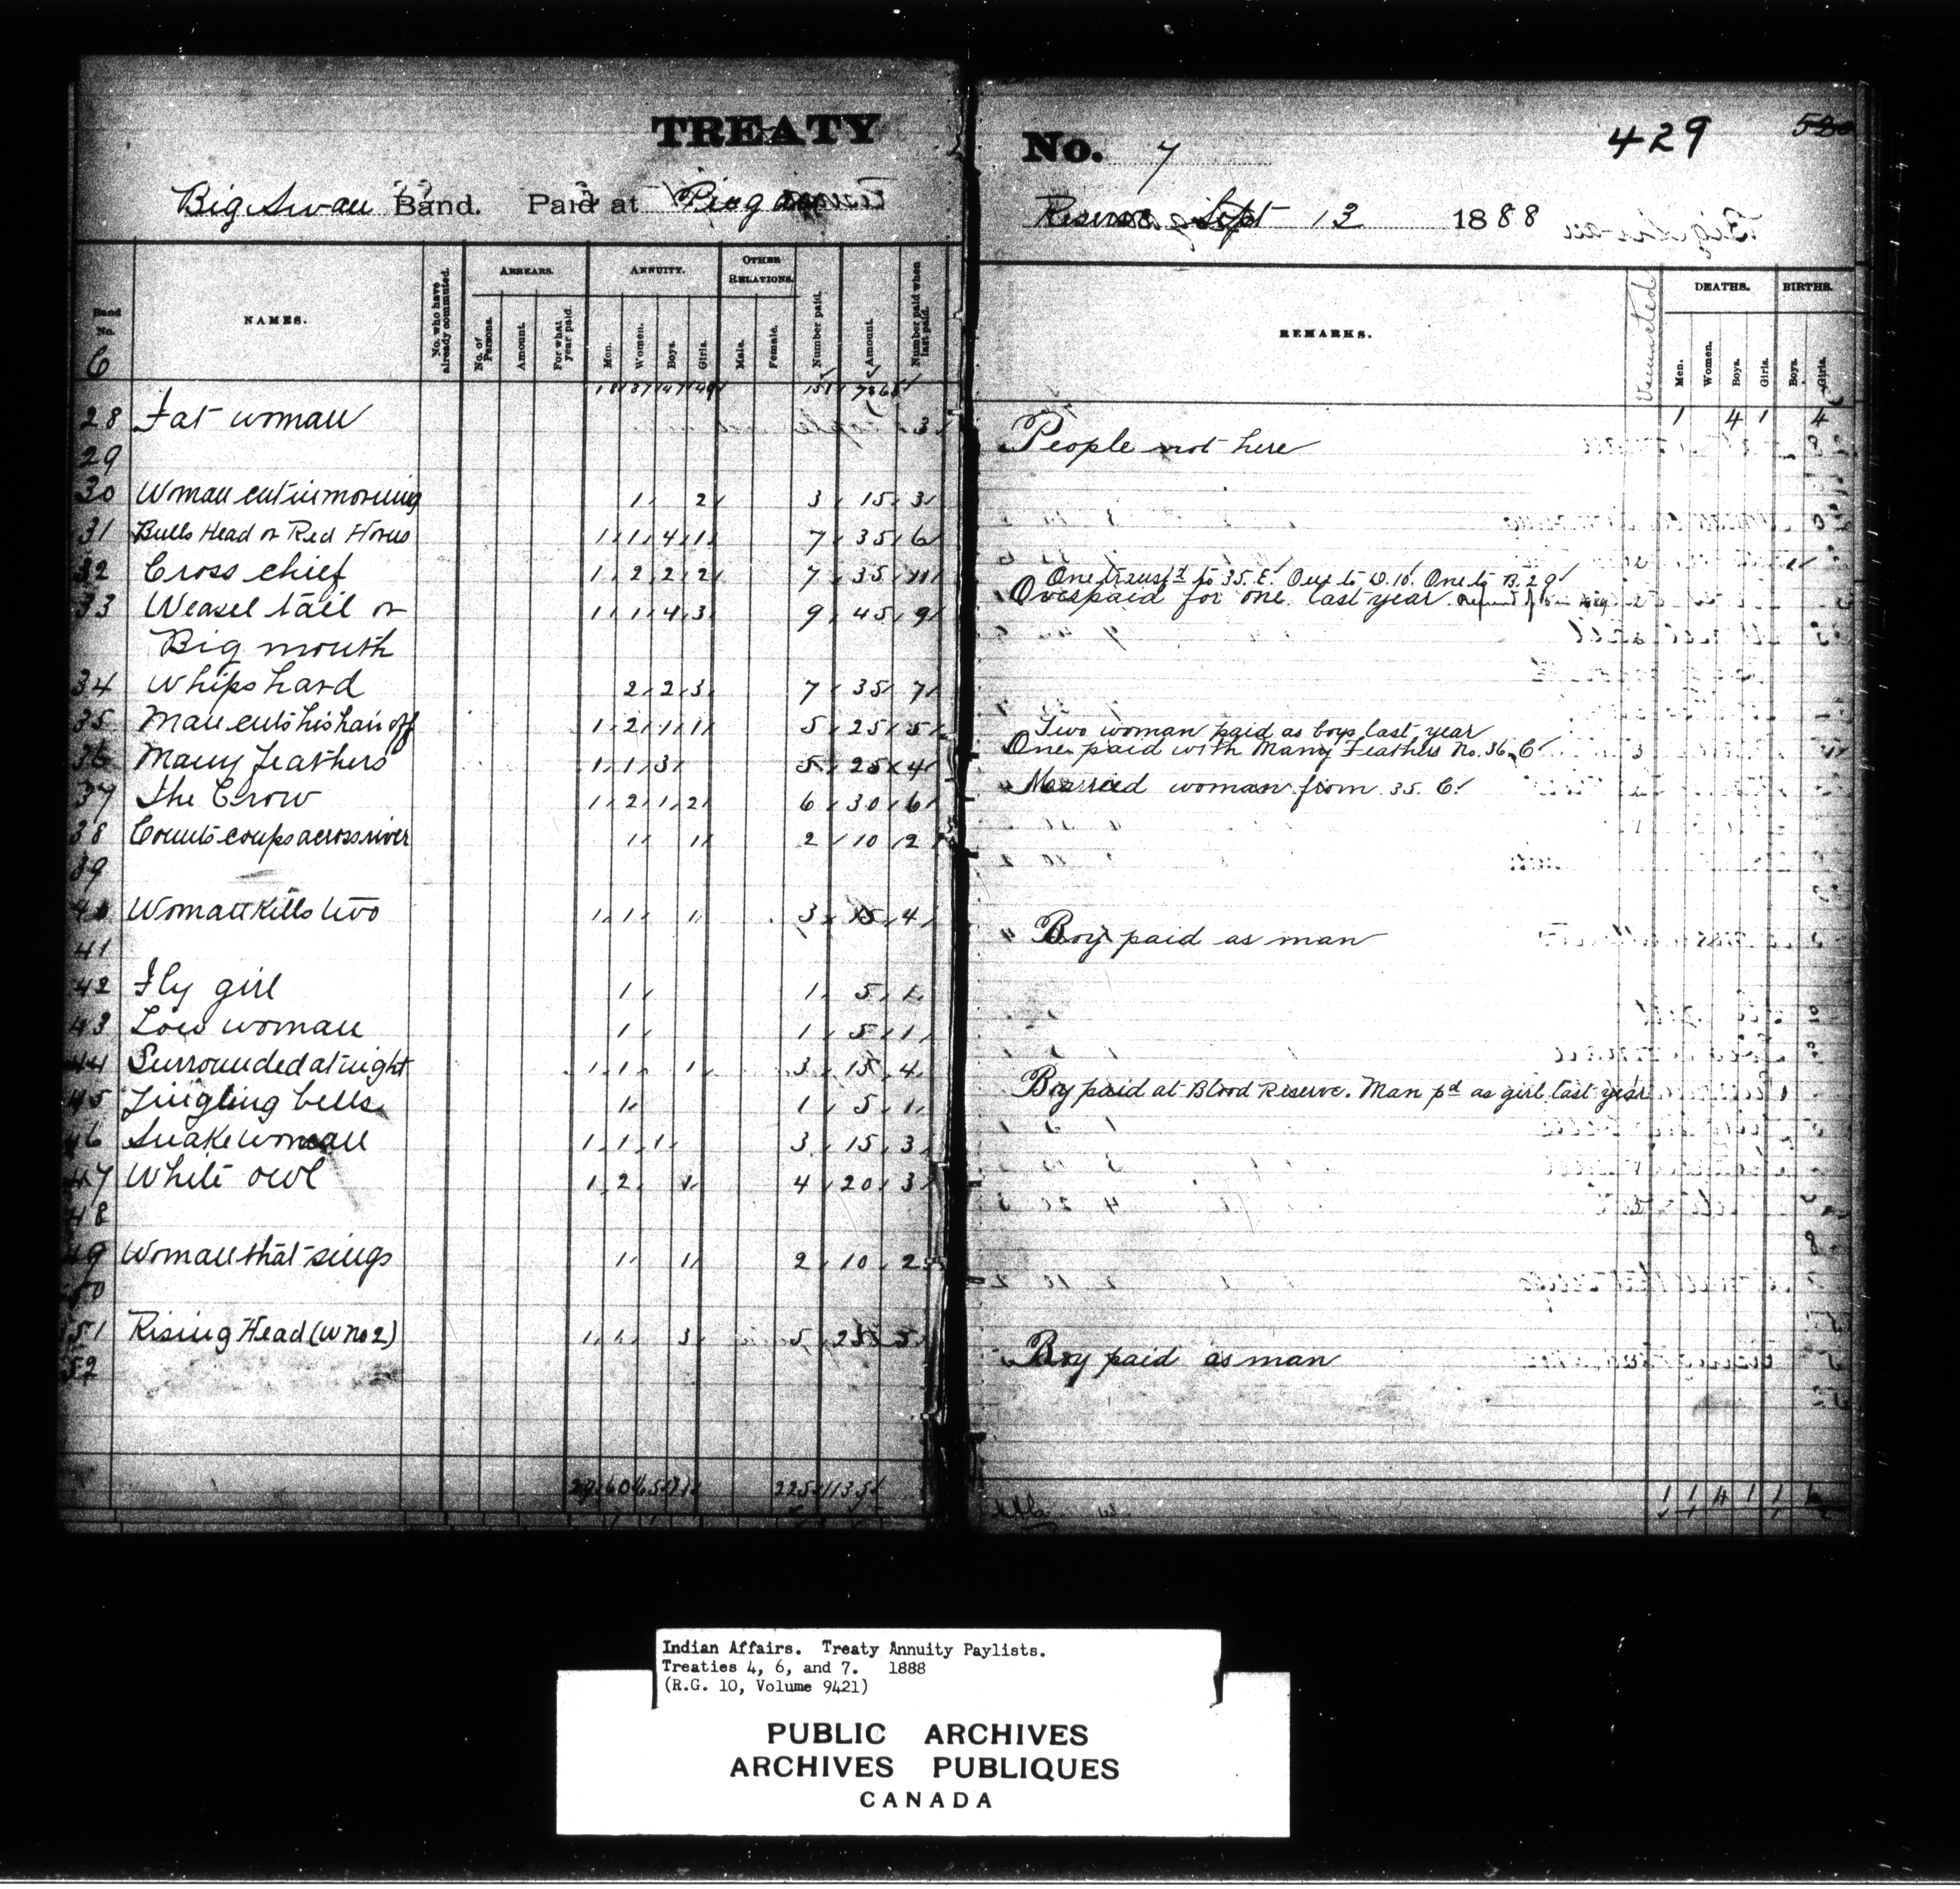 TREATY
No. 7
429
Big Swan Band. Paid at Piegan
Reserve Sept 13 1888
Band No. NAMES. No. who have already commuted. ARREARS. No. of Persons. Amount. For what year paid. ANNUITY. Men. Women. Boys. Girls. OTHER RELATIONS. Male. Female. Number paid. Amount. Number paid when last paid.
REMARKS. Vaccinated DEATHS. Men. Women. Boys. Girls. BIRTHS. Boys. Girls.
1 4 1 4
28 Fat woman 3 People not here
29
30 Woman cut in morning 1 2 3 15 3
31 Bulls Head or Red Horns 1 1 4 1 7 35 6
32 Cross chief 1 2 2 2 7 35 One transfd to 35. E. One to D. 10. One to B. 29
33 Weasel tail or 1 1 4 3 9 45 9 Overpaid for one last year.
Big mouth
34 Whips hard 2 2 3 7 35 7
35 Man cuts his hair off 1 2 1 1 5 25 5 Two woman paid as boys last year
One paid with Many Feathers No. 36. C
36 Many feathers 1 1 3 5 25 4
37 The Crow 1 2 1 2 6 30 6 Married woman from 35. C.
38 Counts coups across river 1 1 2 10 2
39
40 Woman Kills two 1 1 1 3 15 4 Boy paid as man
41
42 Fly girl 1 1 5 1
43 Low woman 1 1 5 1
44 Surrounded at night 1 1 1 3 15 4 Boy paid at Blood Reserve. Man pd as girl last year
45 Jingling bells 1 1 5 1
46 Snake woman 1 1 1 3 15 3
47 White owl 1 2 1 4 20 3
48
49 Woman that sings 1 1 2 10 2
50
51 Rising Head (W no 2) 1 1 3 5 25 5 Boy paid as man
52
Indian Affairs. Treaty Annuity Paylists.
Treaties 4, 6, and 7. 1888
(R.G. 10, Volume 9421)
PUBLIC ARCHIVES
ARCHIVES PUBLIQUES
CANADA